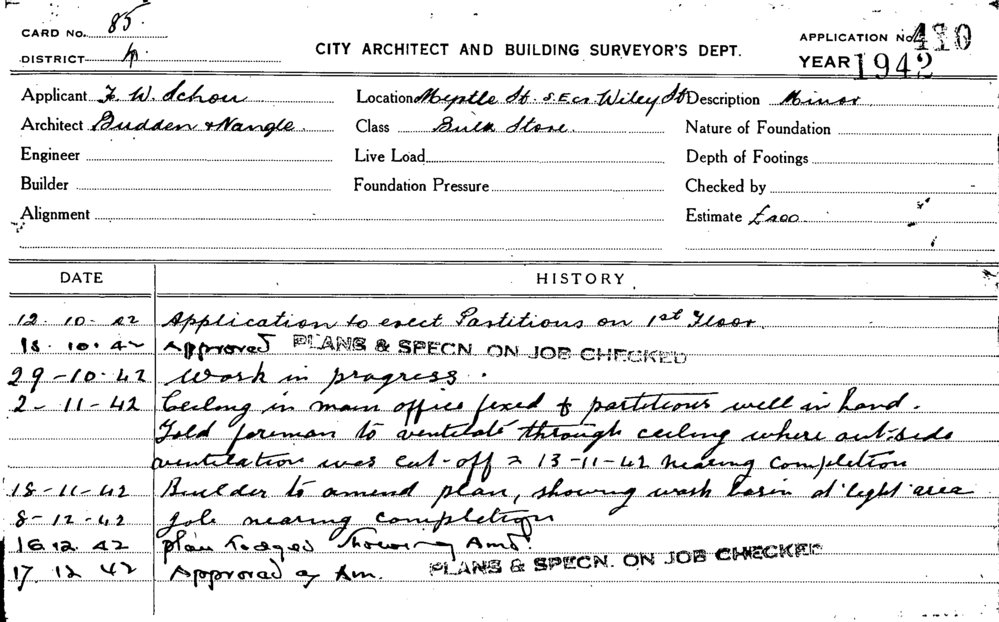 CARD No. 85.
DISTRICT
CITY ARCHITECT AND BUILDING SURVEYOR'S DEPT.
APPLICATION No. 410
YEAR 1942
Applicant F. W. Schou Location Myrtle St. S.E. Cr Wiley St Description Minor
Architect Budden & Nangle. Class Bulk Store. Nature of Foundation
Engineer Live Load Depth of Footings
Builder Foundation Pressure Checked by
Alignment Estimate
DATE HISTORY
12. 10. 42 Application to erect Partitions on 1st Floor.
10. 42 Approved PLANS & SPECN. ON JOB CHECKED
29-10-42 Work in progress.
2-11-42 Ceiling in main office fixed & partitions well in hand.
Told foreman to ventilate through ceiling where outside
ventilation was cut-off = 13-11-42 nearing completion
18-11-42 Builder to amend plan, showing wash basin at light area
8-12-42 Job nearing completion
16 12. 42 plan lodged showing Amdt.
17. 12 42 Approved Am. PLANS & SPECN. ON JOB CHECKED